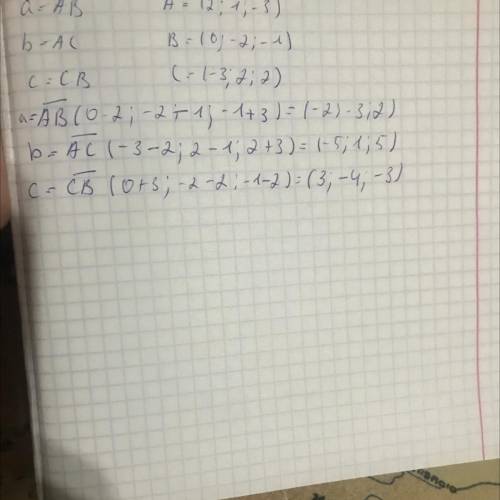 a = AB A = (2; 1; -3)
b = AC B = (0; -2; -1)
c = CB C = (-3; 2; 2)
a = AB (0-2; -2-1; -1+3) = (-2; -3; 2)
b = AC (-3-2; 2-1; 2+3) = (-5; 1; 5)
c = CB (0+3; -2-2; -1-2) = (3; -4; -3)